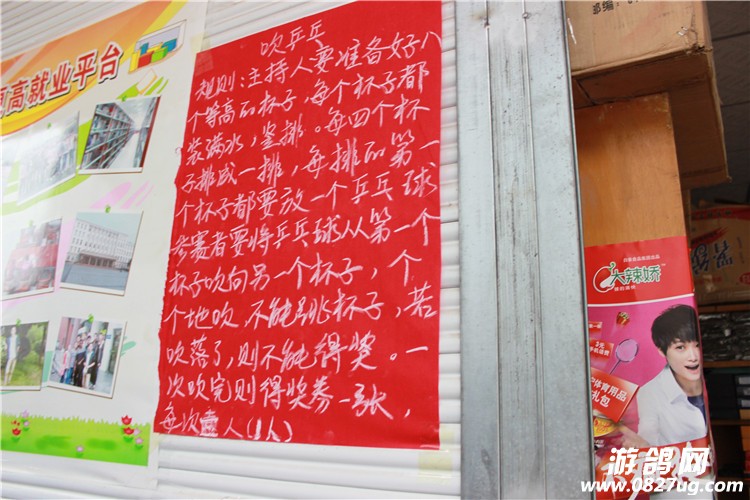 高就业平台
吹乒乓
规则:主持人要准备好八
个等高的杯子,每个杯子都
装满水,竖排。每四个杯
子排成一排,每排的第一
个杯子都要放一个乒乓球
参赛者要将乒乓球从第一个
杯子吹向另一个杯子,个
个地吹,不能跳杯子,若
吹落了,则不能得奖。一
次吹完则得奖券一张,
每次壹人(1人)
邮编:
大辣娇
5元
体育用品
礼包
游鸽网
www.0827ug.com